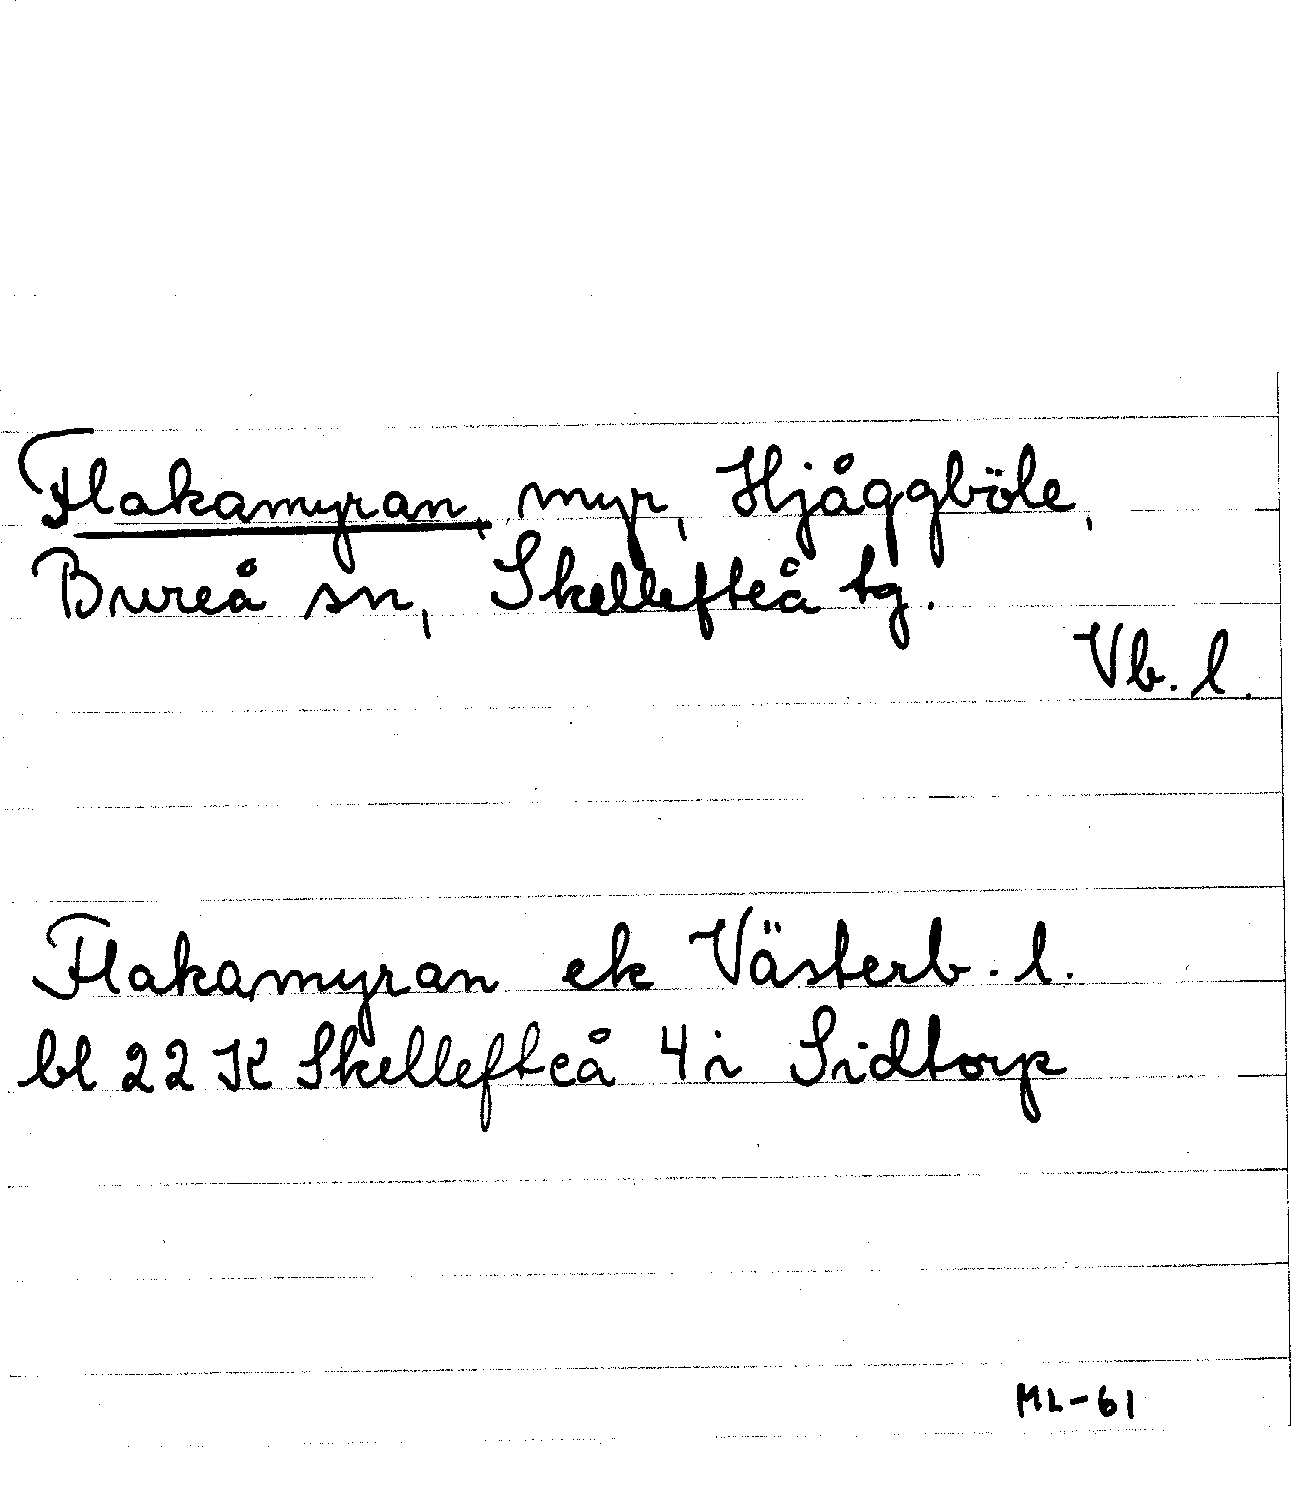 Flakamyran, myr, Hjåggböle,
Bureå sn, Skellefteå tg.
Vb. l.
Flakamyran ek Västerb. l.
bl 22 K Skellefteå 4 i Sidtorp
ML-61